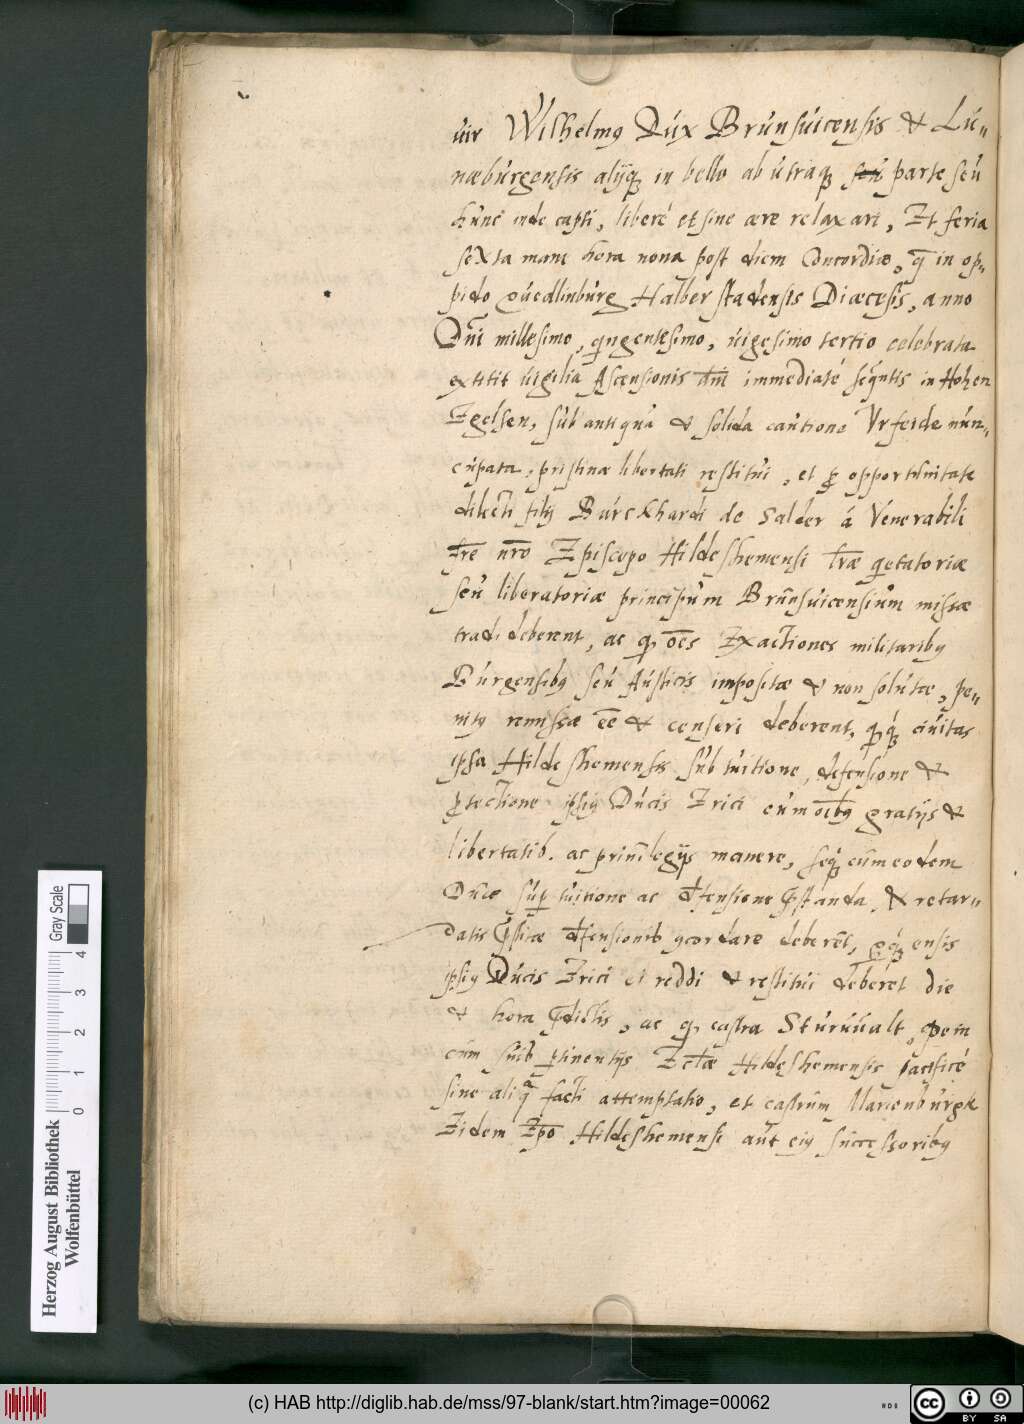 uir Wilhelmꝯ Dux Brunsuicensis & Lu-
næburgensis alijqꝫ in bello ab utraqꝫ seu parte seu
hunc inde capti, liberé et sine ære relaxari, Et feria
sexta mane hora nona post diem Concordiæ, q̄ in op-
pido Quedlinburg Halberstadensis Diæcesis, anno
Dn̄i millesimo, qingentesimo, uigesimo tertio celebrata
extitit uigilia Ascensionis dn̄i immediaté seqn̄tis in Hohen
Egelsen, sub antiqua & solida cautione Vrfeide nun-
cupata, pristinæ libertati restitui, et ꝓ opportunitate
dilecti filij Burckhardi de Salder á Venerabili
fr̄e nr̄o Episcopo Hildeshemensi lr̄æ qietatoriæ
seu liberatoriæ principum Brunsuicensium missæ
tradi deberent, ac qꝫ oēs Exactiones militaribꝯ
Burgensibꝯ seu Rusticis impositæ & non solutæ, pe-
nitꝯ remissæ eē & censeri deberent, qꝫqꝫ ciuitas
ipsa Hildeshemensis sub tuitione, defensione &
ꝓtectione ipsiꝯ Ducis Erici cum oībꝯ gratijs &
libertatib. ac priuilegijs manere, seqꝫ cum eodem
Duce sup tuitione ac dfensione p̄standa, & retar-
datis p̄sitæ dfensionib ꝯcordare deberēt, qꝫ ensis
ipsiꝯ Ducis Erici et reddi & restitui deberēt die
& hora p̄dictis, ac qꝫ castra Sturuualt,
cum suib ꝑtinentijs Eccl̄æ Hildeshemensis
sine aliqa facti attemptatio, et castrum Marienburgk
Eidem Ep̄o Hildeshemensi aut eiꝯ successoribꝯ
Herzog August Bibliothek
Wolfenbüttel
0 1 2 3 4
Gray Scale
(c) HAB http://diglib.hab.de/mss/97-blank/start.htm?image=00062
cc BY SA